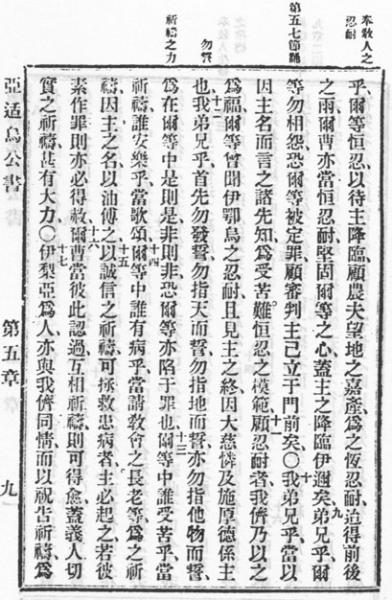 本教人之
忍耐
第五七節䟽
勿誓
祈禱之力
乎、爾等恒忍以待主降臨、顧農夫望地之嘉產、爲之恆忍耐、迨得前後
之雨、爾曹亦當恒忍耐、堅固爾等之心、蓋主之降臨伊邇矣、弟兄乎、爾
等勿相怨、恐爾等被定罪、顧審判主已立于門前矣、〇我弟兄乎、當以
因主名而言之諸先知、爲受苦難恒忍之模範、顧忍耐者、我儕乃以之
爲福、爾等曾聞伊鄂烏之忍耐、且見主之終、因大慈憐及施厚德係主
也、我弟兄乎、首先勿發誓、勿指天而誓、勿指地而誓、亦勿指他物而誓、
爲在爾等中是則是、非則非、恐爾等亦陷于罪也、爾等中誰受苦乎、當
祈禱、誰安樂乎、當歌頌、爾等中誰有病乎、當請教會之長老等、爲之祈
禱、因主之名、以油傅之、以誠信之祈禱、可拯救患病者、主必起之、若彼
素作罪則亦必得赦、爾曹當彼此認過、互相祈禱、則可得愈、蓋義人切
實之祈禱、甚有大力、〇伊梨亞爲人、亦與我儕同情、而以祝告祈禱、爲
九
十
十一
十二
十三
十四
十五
十六
十七
亞适烏公書
第五章
九